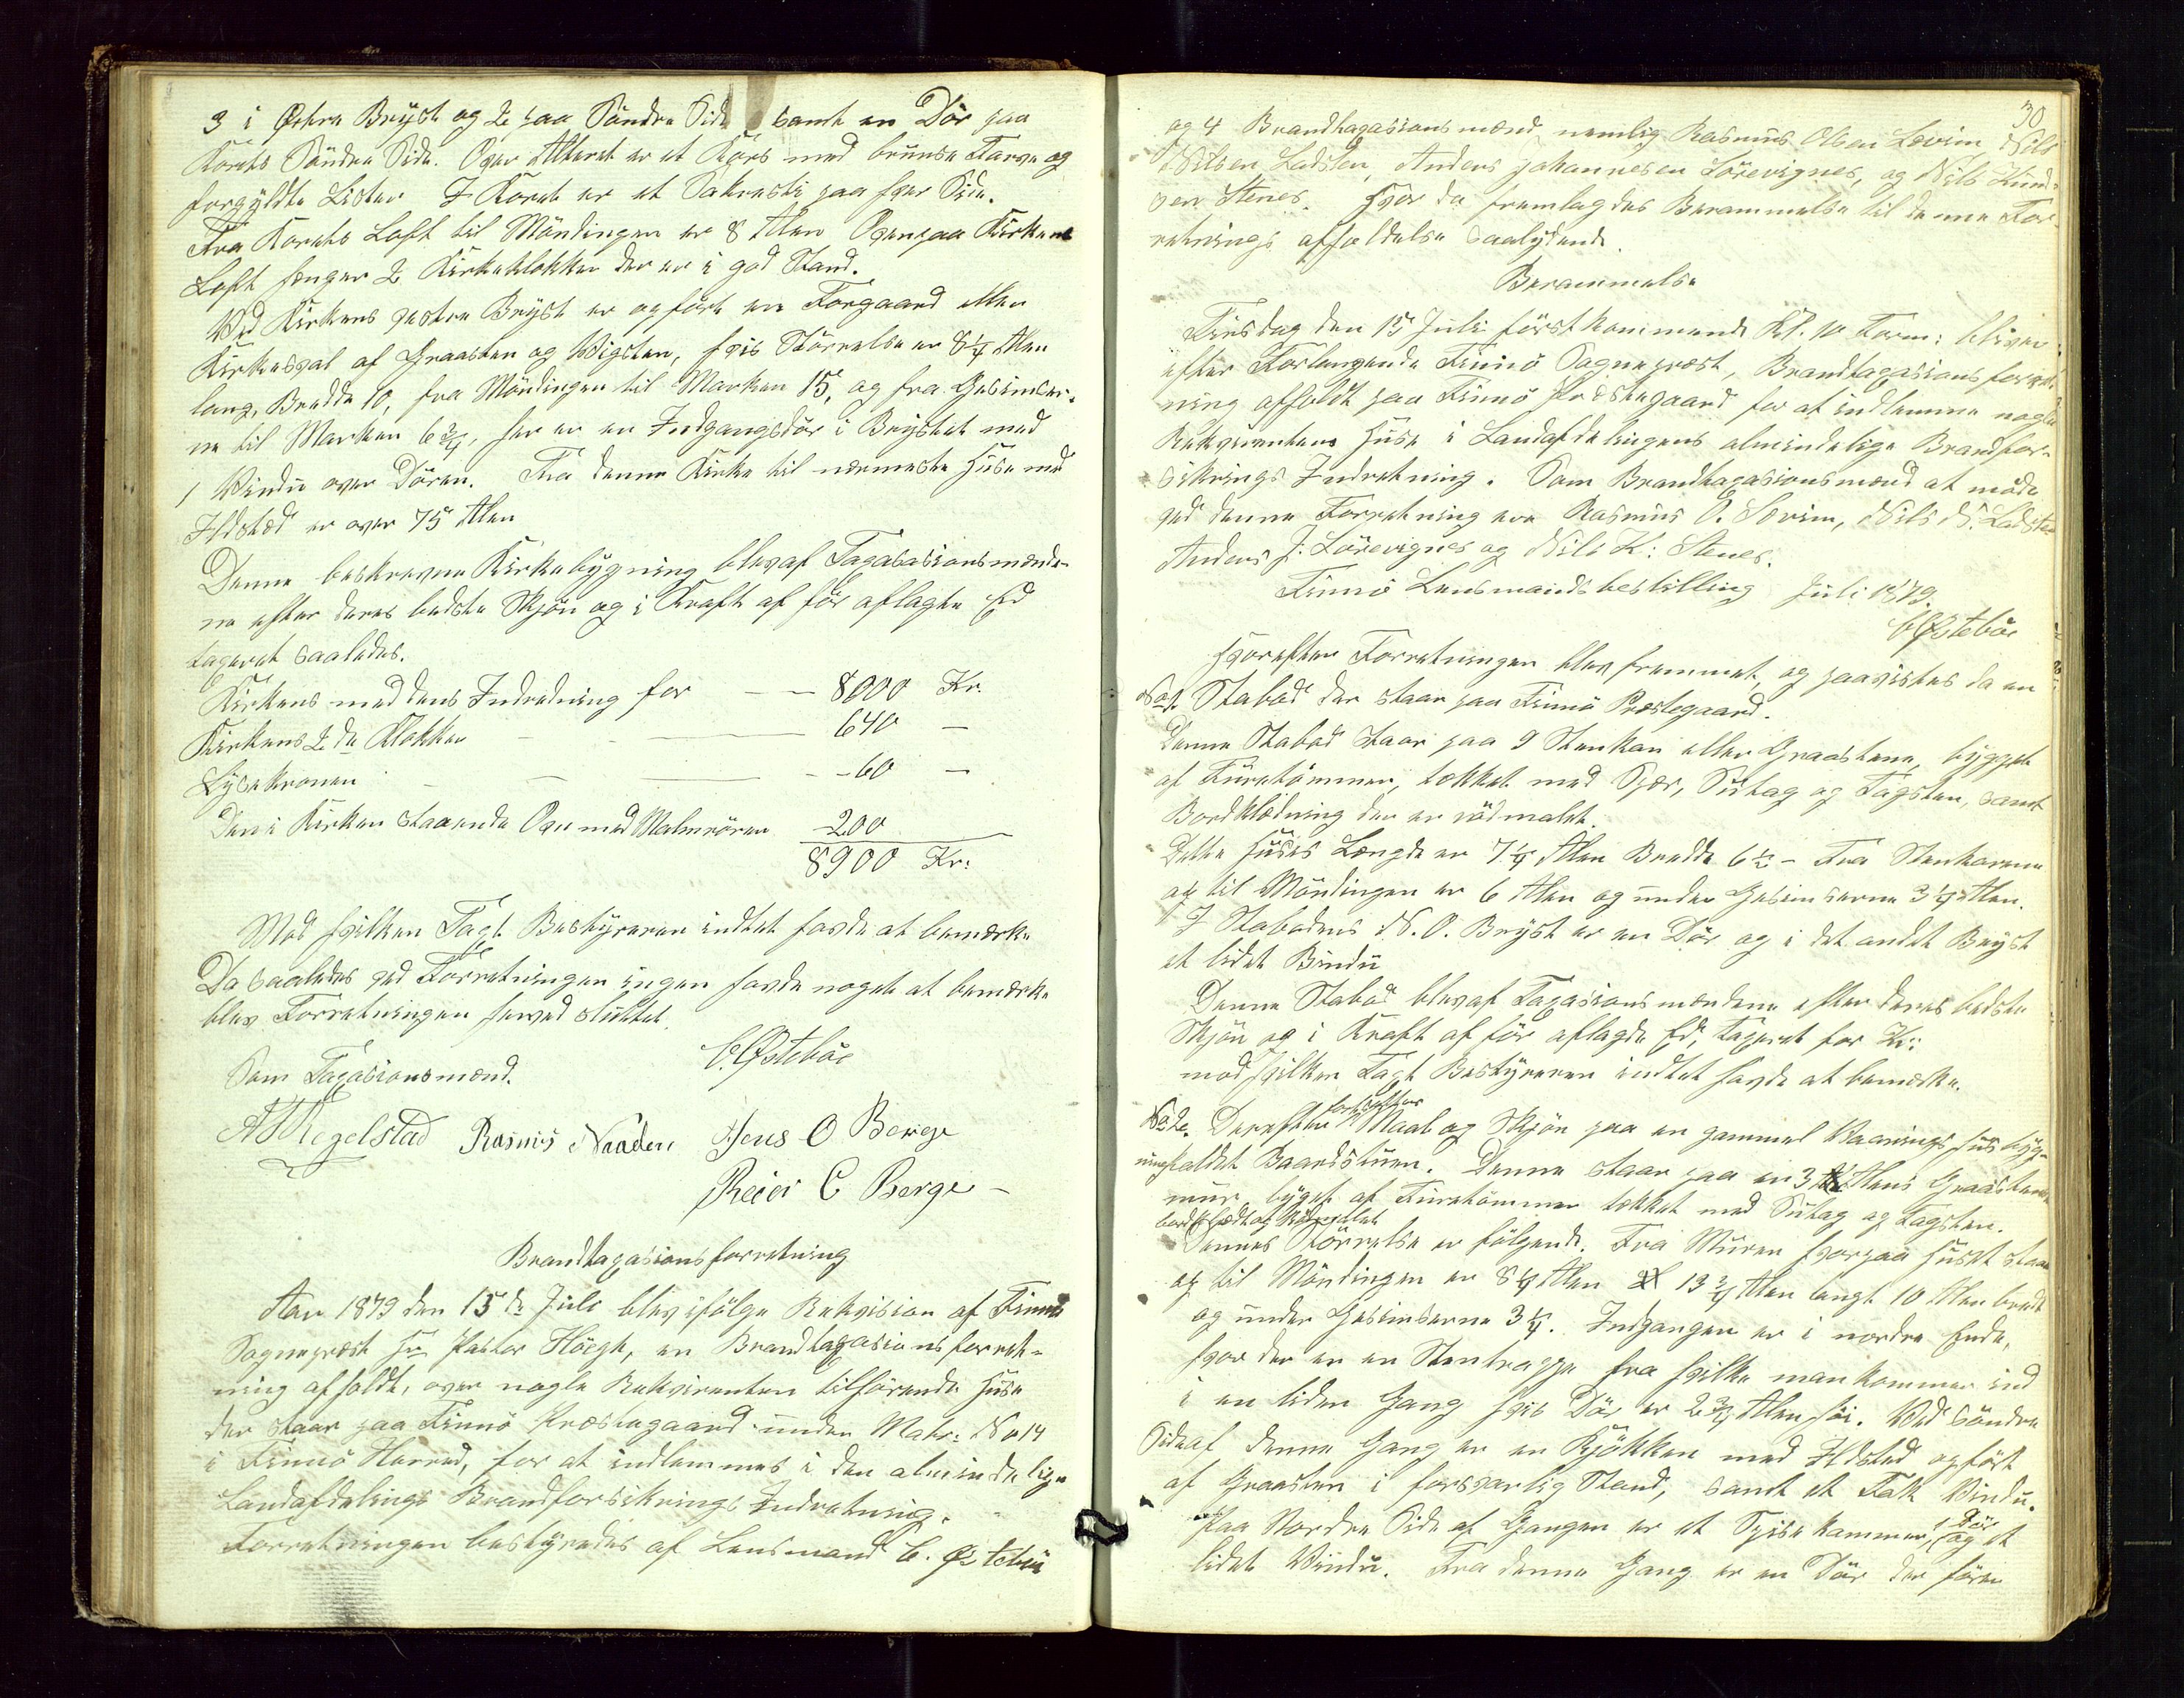 3 i Östre Bryst og 2 paa Söndre Side samt en Dör paa
Korets Söndre Side. Over Alteret er et Kors med brunse Farve og
forgyldte Lister I Koret er et Sakresti paa hver Side.
Fra Korets Loft til Möndingen er 8 Alen Ovenpaa Kirkens
Loft henger 2 Kirkeklokker der er i god Stand.
Ved Kirkens vestre Bryst er opfört en Forgaard eller
Kirkesval af Graasten og Vigsten, hvis Störrelse er 8 1/4 Alen
lang, Bredde 10, fra Möndingen til Marken 15, og fra Gesimser-
ne til Marken 6 3/4, her er en Indgangsdör i Brystet med
1 Vindu over Dören. Fra denne Kirke til nærmeste Huse med
Ildsted er over 75 Alen
Denne beskrevne Kirkebygning blev af Taxasionsmænde-
ne efter deres bedste Skjön og i Kraft af för aflagte Ed
taxeret saaledes.
Kirkens med dens Indredning for — — 8000 Kr.
Kirkens 2de Klokker — 640 —
Lysekronen — — 60 —
Den i Kirken staaende Ovn med Malmrören 200
8900 Kr:
Mod hvilken Taxt Bestyreren indtet havde at bemærke
Da saaledes ved Forretningen ingen havde noget at bemærke
blev Forretningen herved sluttet.
C. Østeböe
Som Taxasionsmænd.
Regelstad Rasmus Naaden Jens O Berge
Reier C Berge
Brandtaxasionsforretning
Aar 1879 den 15de Juli blev ifölge Rekvision af Finnö
Sognepræst Hr Pastor Höegh, en Brandtaxasionsforret-
ning afholdt, over nogle Rekvirenten tilhörende Huse
der staar paa Finnö Præstegaard under Matr: No 14
i Finnö Herred, for at indlemmes i den almindelige
Landafdelings Brandforsikrings Indretning.
Forretningen bestyredes af Lensmand C. Östeböe
30
og 4 Brandtaxasionsmænd nemlig Rasmus Olsen Lovim, Nils
Nilsen Ladsten, Anders Johannesen Lörevignes, og Nils Knud-
sen Stenes. Hvor da fremlagdes Berammelse til denne For-
retnings afholdelse saalydende.
Berammelse
Tirsdag den 15 Juli förstkommende Kl. 10 Form: bliver
efter Forlangende Finnö Sognepræst, Brandtaxasionsforret-
ning afholdt paa Finnö Præstegaard for at indlemme nogle
Rekvirentens Huse i Landafdelingens almindelige Brandfor-
sikrings Indretning. Som Brandtaxasionsmænd at möde
ved denne Forretning ere Rasmus O. Lovim, Nils N. Ladsten
Anders J. Lörevignes og Nils K: Stenes.
Finnö Lensmandsbestilling Juli 1879.
C Østeböe
Hvorefter Forretningen blev fremmet, og paavistes da en
No 1. Stabod der staar paa Finnö Præstegaard.
Denne Stabod staar paa 9 Stenkar eller Graastene, bygget
af Furetömmer, tekket med Spær, Sutag og Tagsten, samt
Bordklædning der er rödmalet.
Dette Huses Længde er 7 1/4 Alen Bredde 6 1/2 - Fra Stenkarene
og til Möndingen er 6 Alen og under Gesimserne 3 1/4 Alen.
I Stabodens N.O. Bryst er en Dör og i det andet Bryst
et lidet Vindu
Denne Stabod blev af Taxasionsmændene efter deres bedste
Skjön og i Kraft af för aflagde Ed, taxeret for Kr:
mod hvilken Taxt Bestyreren indtet havde at bemærke.
No 2. Derefter fortsættes Maal og Skjön paa en gammel Vaanings Husbyg-
ning kaldet Baardstuen. Denne staar paa en 3 Alens Graastens
mur, bygget af Furetömmer tekket med Sutag og Tagsten.
bordklædt og Rödmalet
Dennes Störrelse er fölgende. Fra Muren hvorpaa Huset staar
og til Möndingen er 8 1/4 Alen 13 3/4 Alen langt 10 Alen bredt
og under Gesimserne 3 1/4. Indgangen er i nordre Ende,
hvor der er en Stentrappe fra hvilke man kommer ind
i en liden Gang hvis Dör er 2 3/4 Alen höi. Ved söndre
Side af denne Gang er en Kjökken med Ildsted opfört
af Graasten i forsvarlig Stand, samt et Fak Vindu.
Paa Nordre Side af Gangen er et Spisekammer, 1 Dör og et
lidet Vindu. Fra denne Gang er en Dör der förer